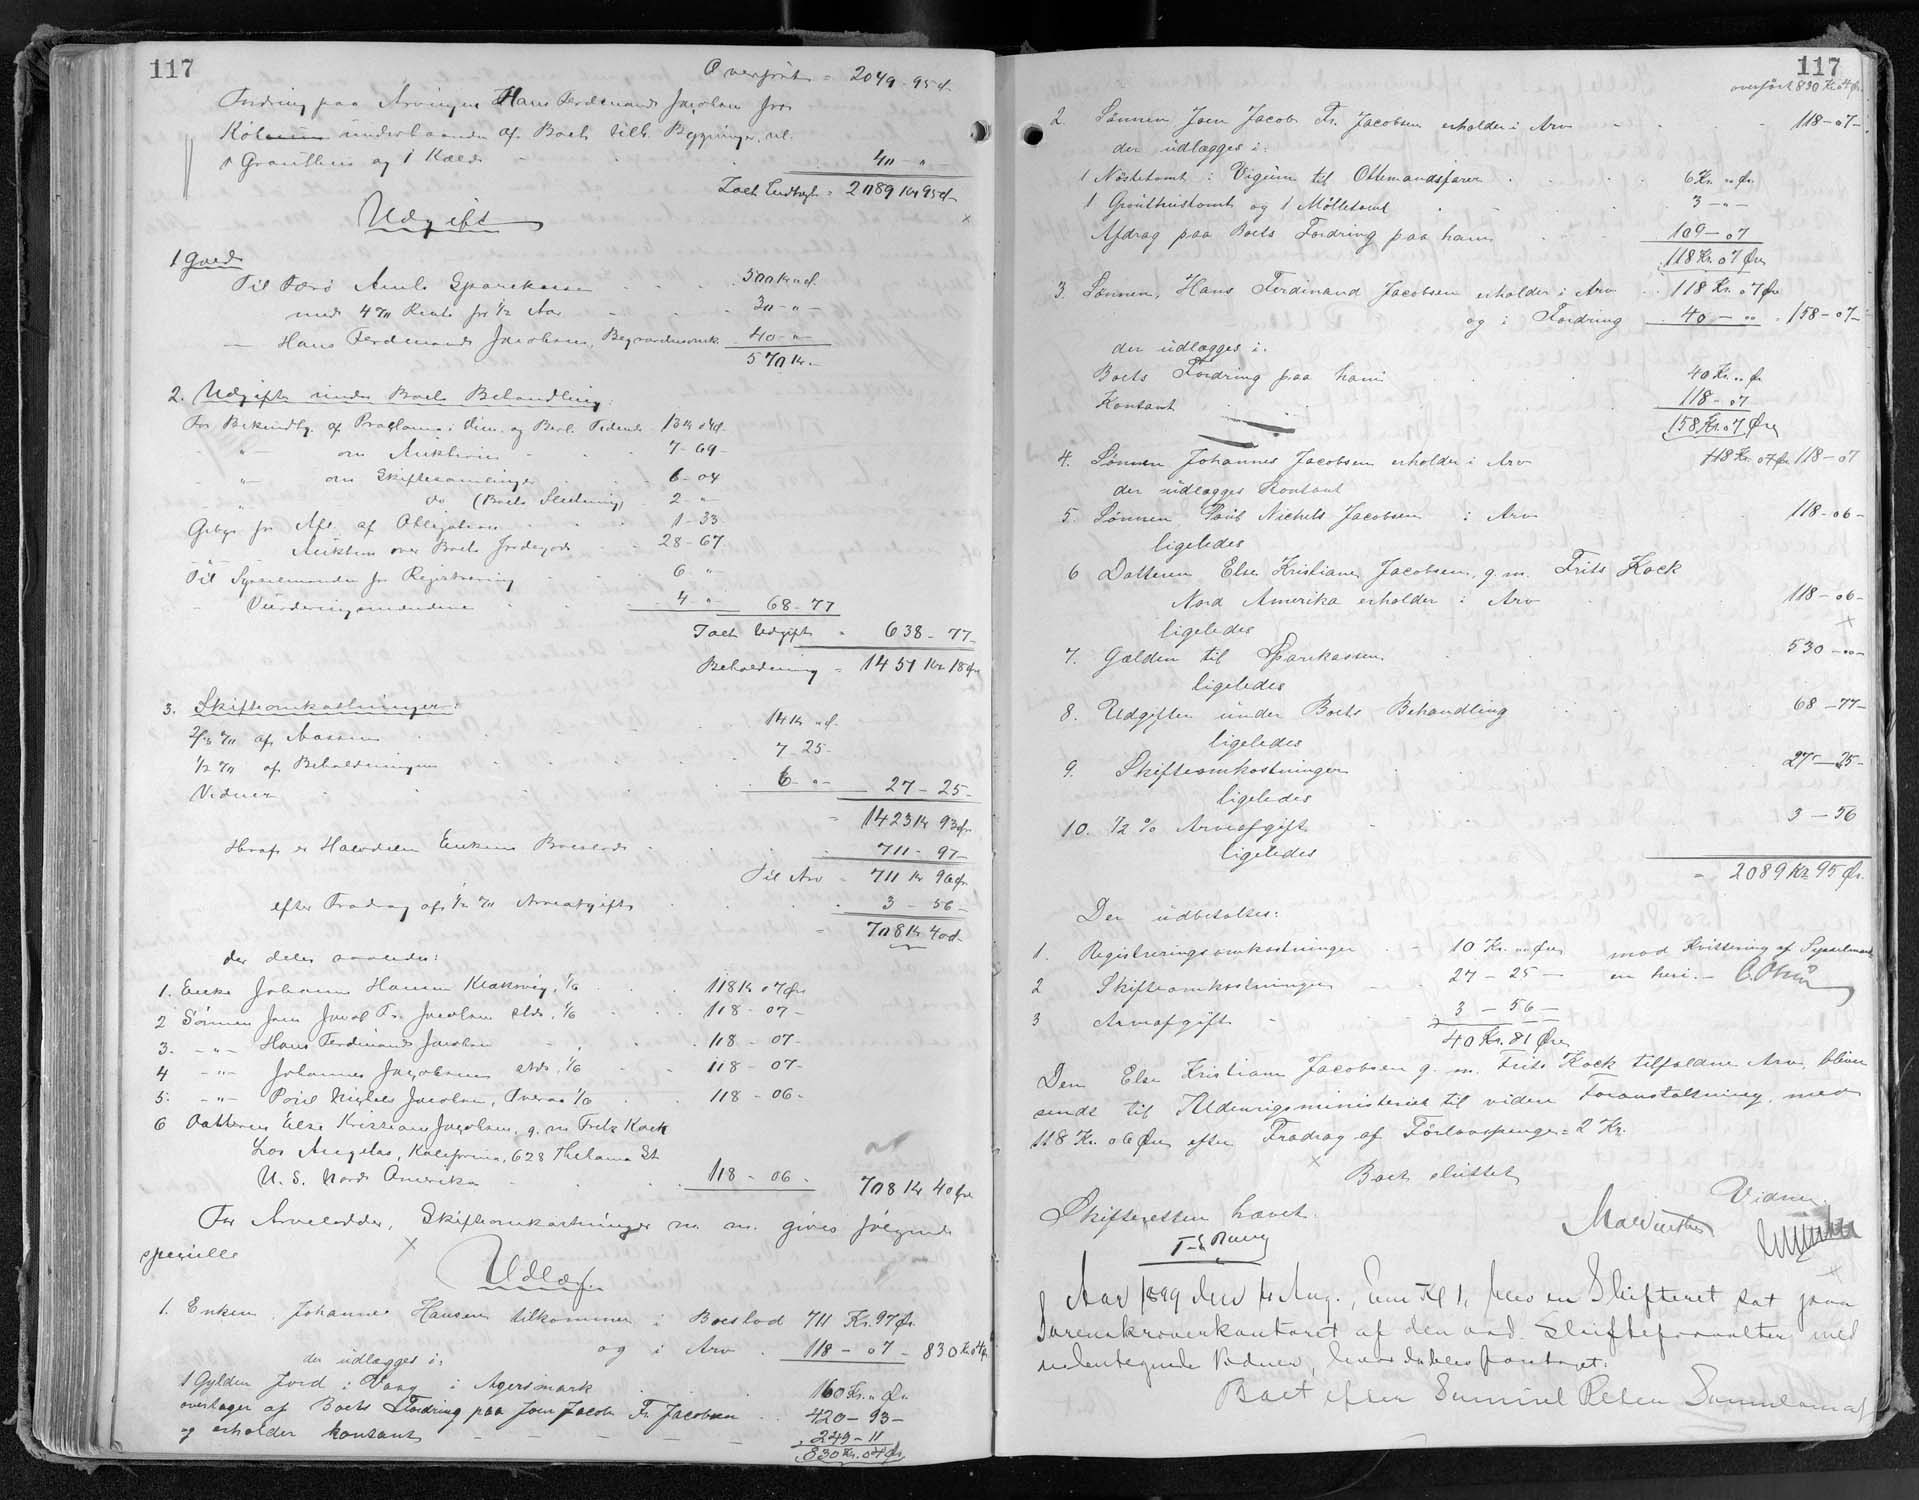 117
Overført = 2049-95Ø.
Fordring paa Arvingen Hans Ferdinand Jacobsen for
underhaanden af Boets tilh. Bygninger, nl.
1 Grouthus og 1 Kæld
40 - " -
Talt Indtægt = 2089 Kr 95Ø
Udgift
1 Gæld
Til Færø Amts Sparekasse 500 Kr " Ø.
med 4 % Rente for 1/2 Aar 30 - " -
— Hans Ferdinand Jacobsen, Begravelsesomk. 40 - " -
570 Kr. -
2. Udgifter under Boets Behandling:
For Bekiendtg. af Proclama i Dim. og Berl. Tidende 13 Kr 04Ø.
- " - om Auktion 7 - 69 -
- " - om Skiftesamlinger 6 - 04
" do (Boets Slutning) 2 - " -
Gebyr for Afl. af Obligation 1 - 33
Auktion over Boets Jordegods 28 - 67
Til Sysselmanden for Registrering 6 - " -
- Vurderingsmændene 4 - " 68 - 77
Talt Udgift = 638 - 77 -
Beholdning = 1451 Kr 18 Øre
3. Skifteomkostninger:
% af Massen 14 Kr " Ø.
1/2 % af Beholdningen 7 - 25 -
Vidner 6 " - 27 - 25 -
= 1423 Kr 93 Ør.
Heraf er Halvdelen Enkens Boeslod 711 - 97 -
Til Arv = 711 Kr 96 Ør.
efter Fradrag af 1/2 % Arveafgift 3 - 56 -
= 708 Kr 40 Ø.
der deles saaledes:
1. Enke Johanne Hansen Klaksvig, 1/6 118 Kr 07 Øre
2 Sønnen Joen Jacob Fr. Jacobsen stds. 1/6 118 - 07 -
3. - " - Hans Ferdinand Jacobsen 118 - 07 -
4 - " - Johannes Jacobsen stds. 1/6 118 - 07 -
5. - " - Poul Nichels Jacobsen, Overaa 1/6 118 - 06 -
6 Datteren Else Kristiane Jacobsen, g. m. Fritz Kock
Los Angelas, Kalifornia, 628 Thelama St
U. S. Nord Amerika 118 - 06 - 708 Kr 40 Øre
For Arvelodder, Skifteomkostninger m. m. gives følgende
specielle
Udlæg.
1. Enken Johanne Hansen tilkommer i Boeslod 711 Kr. 97 Ør.
og i Arv 118 - 07 - 830 Kr 04 Ør.
der udlægges i:
1 Gylden Jord i Vaag i Agersmark 160 Kr. " Ør.
overtager af Boets Fordring paa Joen Jacob Fr. Jacobsen 420 - 93 -
og erholder kontant 249 - 11
830 Kr. 04 Ør.
117
overført 830 Kr 04 Ør.
2. Sønnen Joen Jacob Fr. Jacobsen erholder i Arv 118 - 07 -
der udlægges i:
1 Nöstetomt i Vigum til Ottemandsfarer 6 Kr. " Ør.
1 Grouthustomt og 1 Mölletomt 3 - " -
Afdrag paa Boets Fordring paa ham 109 - 07
118 Kr. 07 Øre
3. Sønnen, Hans Ferdinand Jacobsen erholder i Arv 118 Kr. 07 Ør
og i Fordring 40 - " . 158 - 07 -
der udlægges i:
Boets Fordring paa ham 40 Kr. " Ør
Kontant 118 - 07
158 Kr. 07 Øre
4. Sønnen Johannes Jacobsen erholder i Arv 118 Kr. 07 Ør 118 - 07
der udlægges Kontant
5. Sønnen Poul Nichels Jacobsen i Arv 118 - 06 -
ligeledes
6 Datteren Else Kristiane Jacobsen, g. m. Frits Kock
Nord Amerika erholder i Arv 118 - 06 -
ligeledes
7. Gælden til Sparekassen 530 - " -
ligeledes
8. Udgifter under Boets Behandling 68 - 77 -
ligeledes
9. Skifteomkostninger 27 - 25 -
ligeledes
10. 1/2 % Arveafgift 3 - 56
ligeledes
= 2089 Kr. 95 Ør.
Der udbetales:
1. Registreringsomkostninger 10 Kr. " Øre mod Kvittering af Sysselmand
2 Skifteomkostninger 27 - 25 - en heri. -
3 Arveafgift 3 - 56 -
40 Kr. 81 Øre
Den Else Kristiane Jacobsen g. m. Frits Kock tilfaldne Arv, bliver
sendt til Udenrigsministeriet til videre Foranstaltning, med
118 Kr. 06 Øre efter Fradrag af Förlovspenge = 2 Kr.
Boet sluttet
Skifteretten hævet. Vidner.
Aar 1899 den 14 Aug., Em. Kl 1, blev en Skifteret sat paa
Sorenskriverkontoret af den ord. Skifteforvalter med
undertegnede Vidner, hvor da blev foretaget:
Boet efter Sumuel Petur Samuelsen af